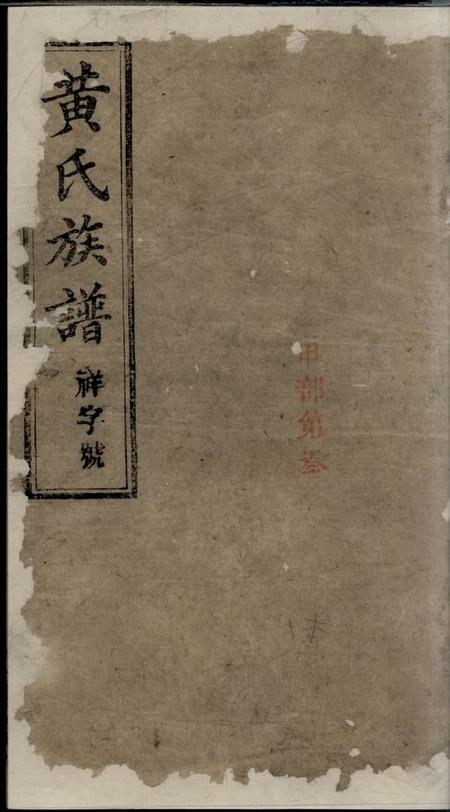 甲部第叁
黃氏族譜
祥字號